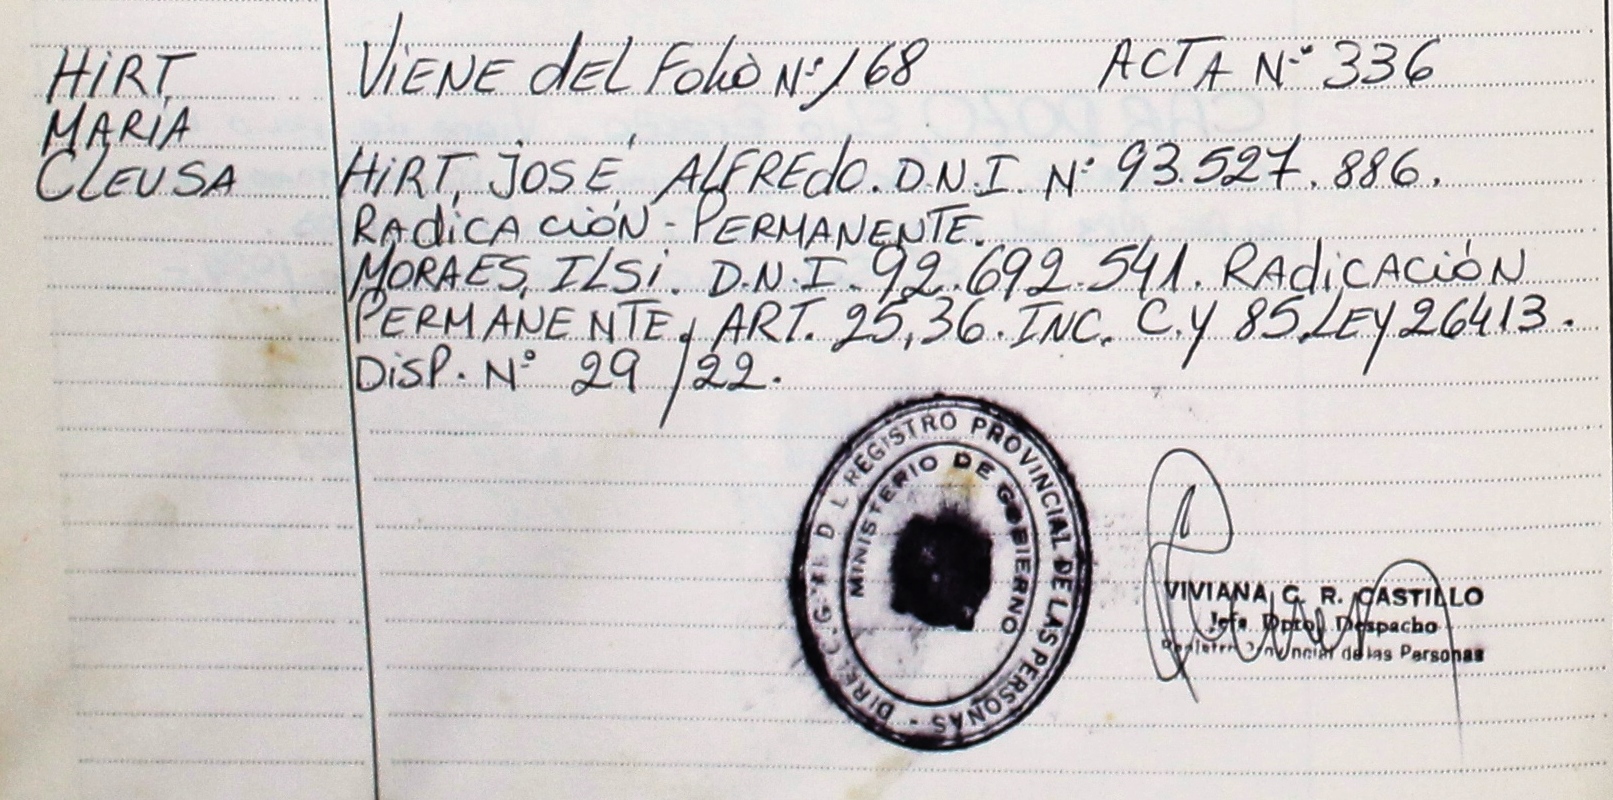 HIRT,
MARÍA
CLEUSA
VIENE dEL Folio Nº 168 ACTA Nº 336
HIRT, JOSÉ ALFREdO. D.N.I. Nº 93.527.886.
RAdICACIÓN - PERMANENTE.
MORAES, ILSI. D.N.I. 92.692.541. RAdICACIÓN
PERMANENTE, ART. 25,36. INC. C. Y 85 LEY 26413.
DISP. Nº 29/22.
REGISTRO PROVINCIAL DE LAS PERSONAS
MINISTERIO DE GOBIERNO
VIVIANA G. R. CASTILLO
Jefa Dpto. Despacho
de las Personas